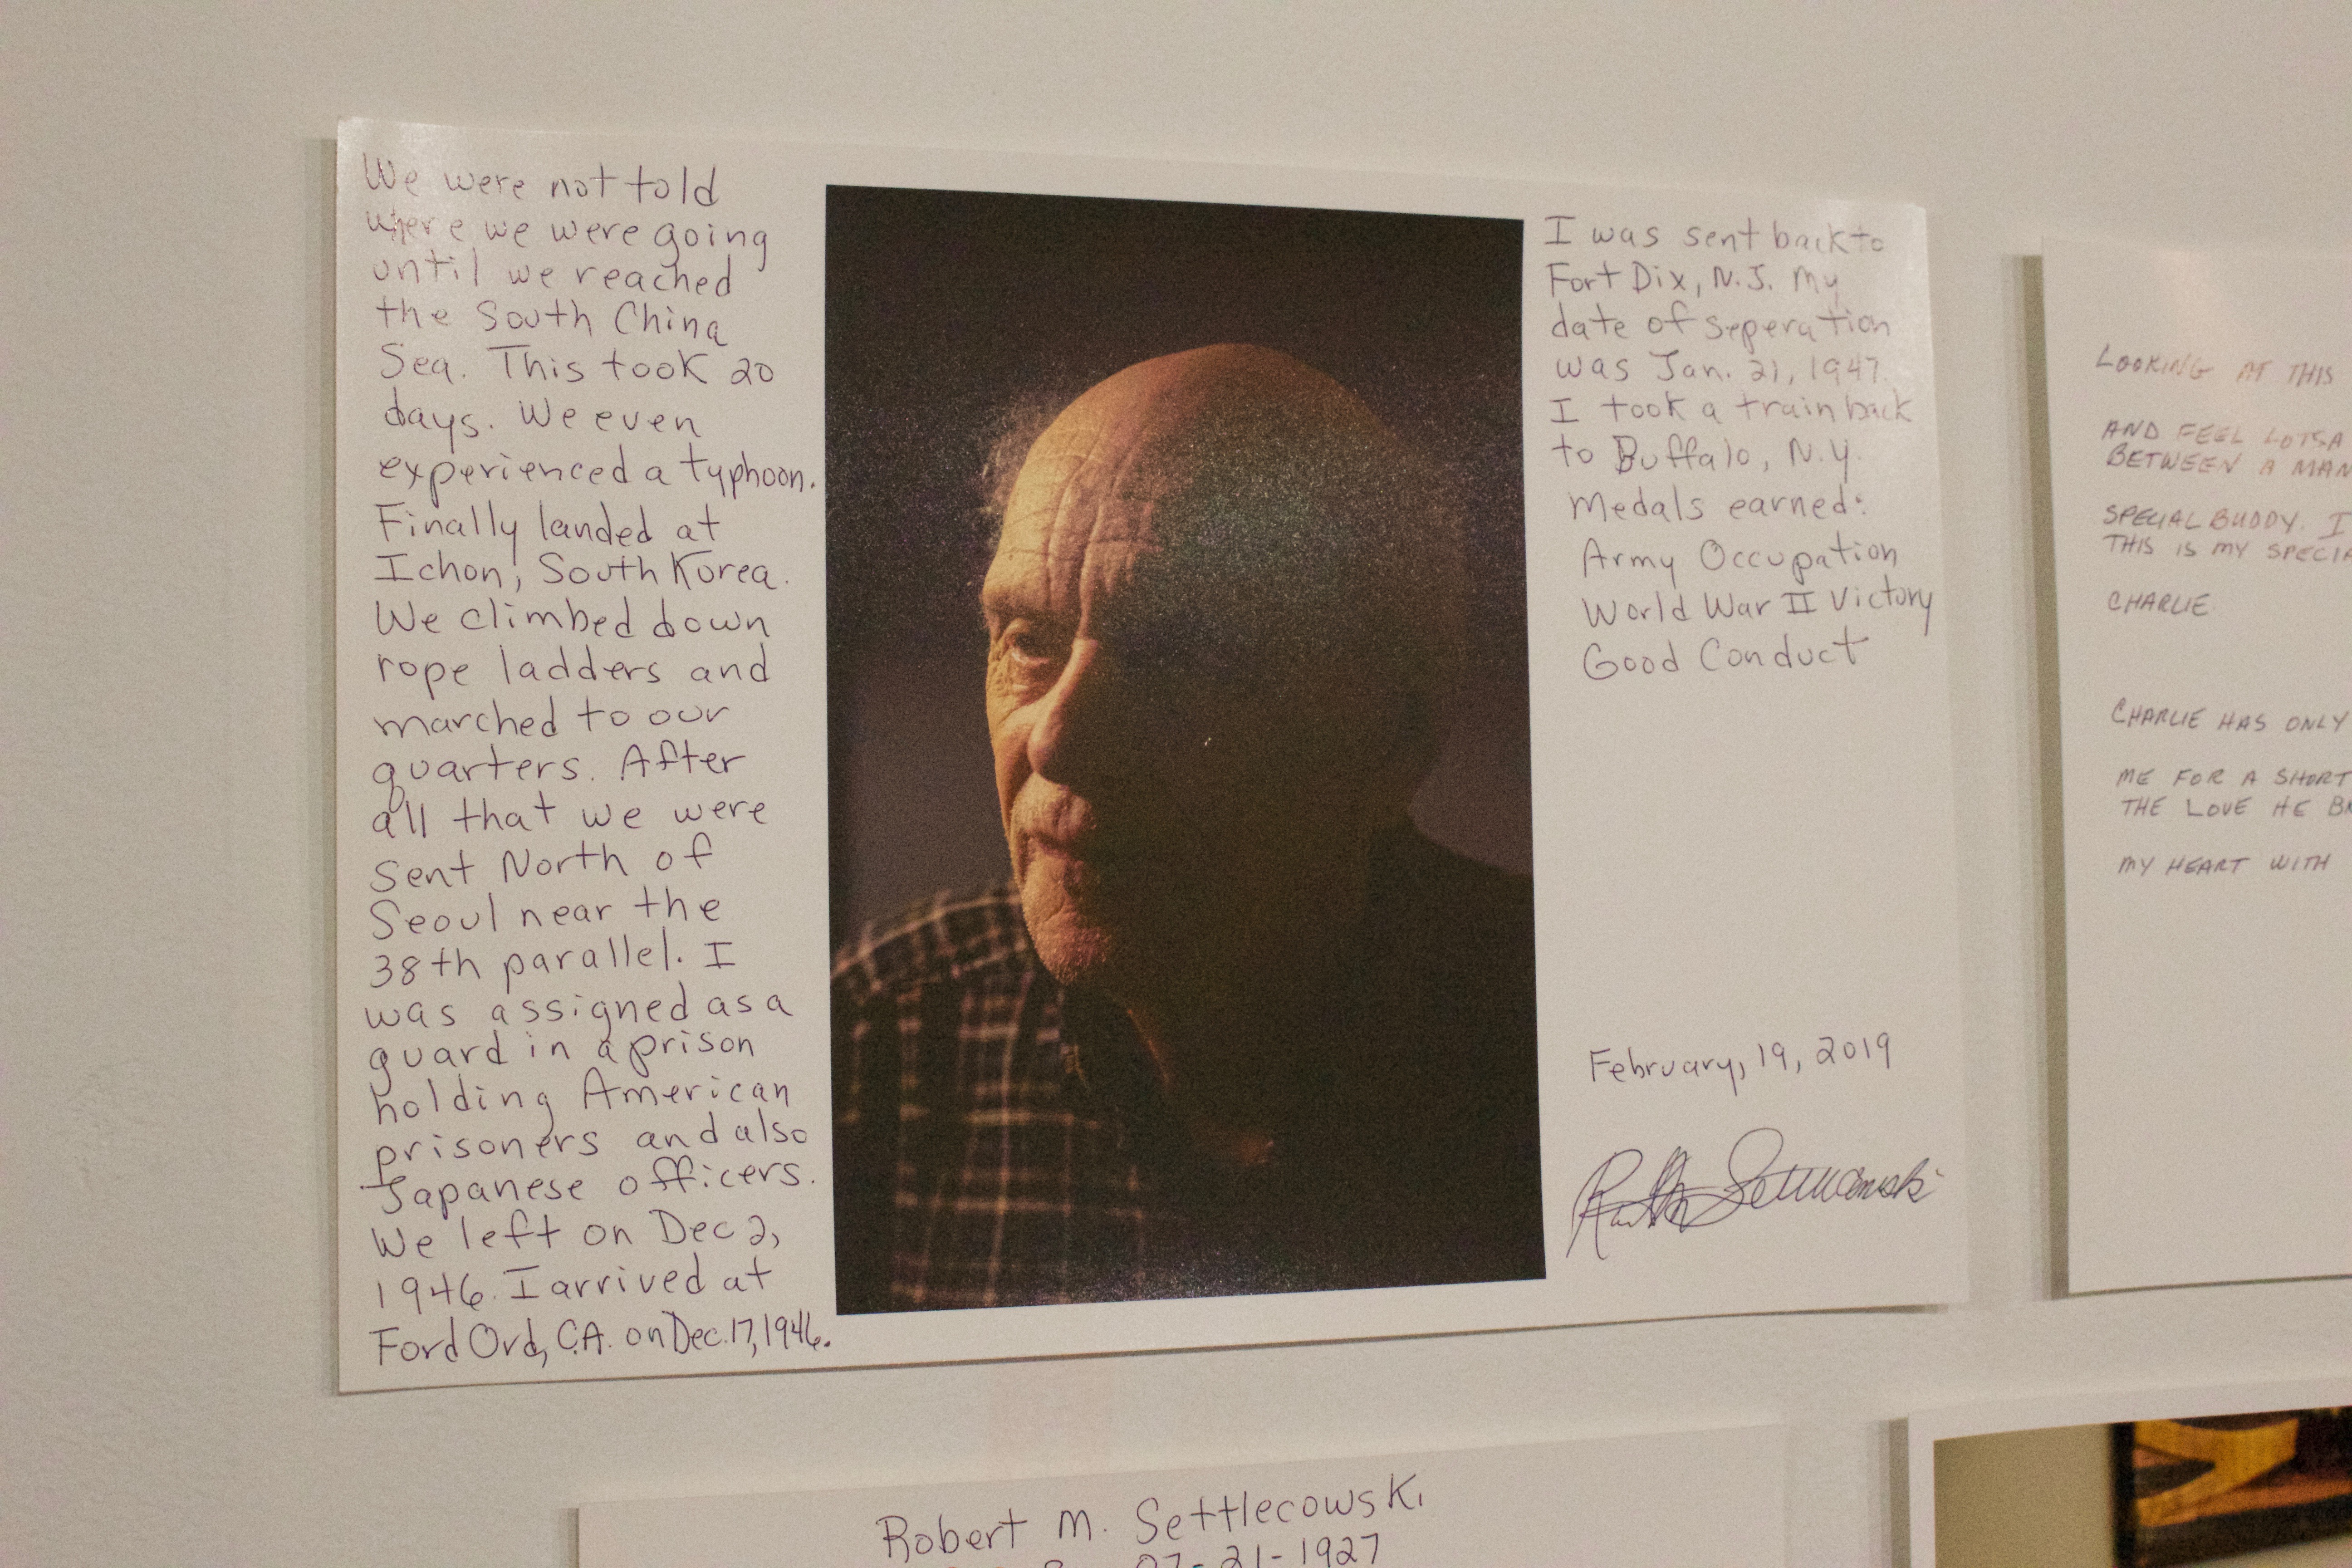 We were not told
where we were going
until we reached
the South China
Sea. This took 20
days. We even
experienced a typhoon.
Finally landed at
Ichon, South Korea.
We climbed down
rope ladders and
marched to our
quarters. After
all that we were
sent North of
Seoul near the
38th parallel. I
was assigned as a
guard in a prison
holding American
prisoners and also
Japanese officers.
We left on Dec 2,
1946. I arrived at
Ford Ord, CA. on Dec. 17, 1946.
I was sent back to
Fort Dix, N.J. My
date of seperation
was Jan. 21, 1947.
I took a train back
to Buffalo, N.Y.
Medals earned:
Army Occupation
World War II Victory
Good Conduct
February, 19, 2019
Settlecowski
LOOKING AT THIS
AND FEEL LOTSA
BETWEEN A MAN
SPECIAL BUDDY. I
THIS IS MY SPECIA
CHARLIE
CHARLIE HAS ONLY
ME FOR A SHORT
THE LOVE HE
MY HEART WITH
Robert M. Settlecowski
07-21-1927